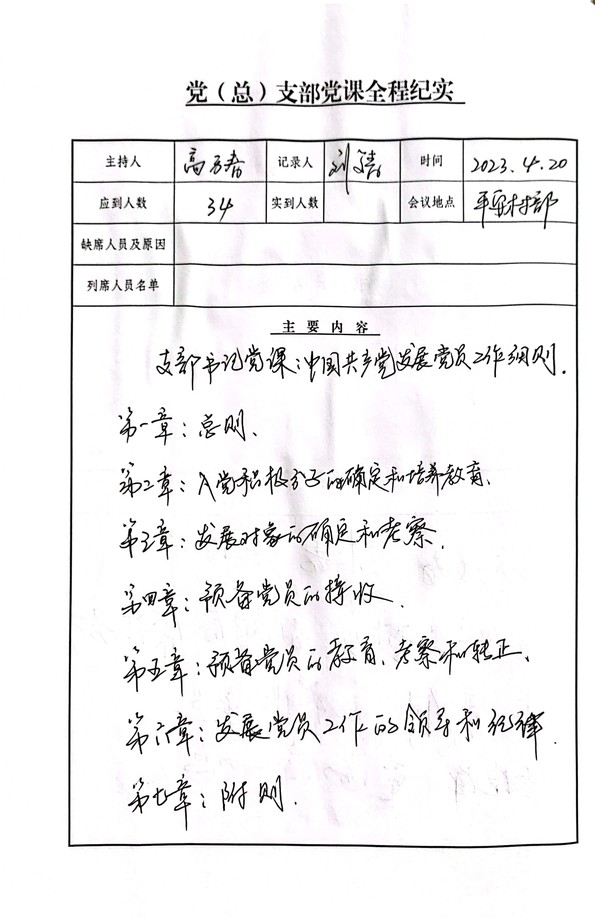 党（总）支部党课全程纪实
主持人 高 春 记录人 刘 时间 2023.4.20
应到人数 34 实到人数 会议地点 平 村部
缺席人员及原因
列席人员名单
主要内容
支部书记党课：中国共产党发展党员工作细则．
第一章：总则、
第二章：入党积极分子的确定和培养教育、
第三章：发展对象的确定和考察、
第四章：预备党员的接收、
第五章：预备党员的教育、考察和转正、
第六章：发展党员工作的领导和纪律
第七章：附则．